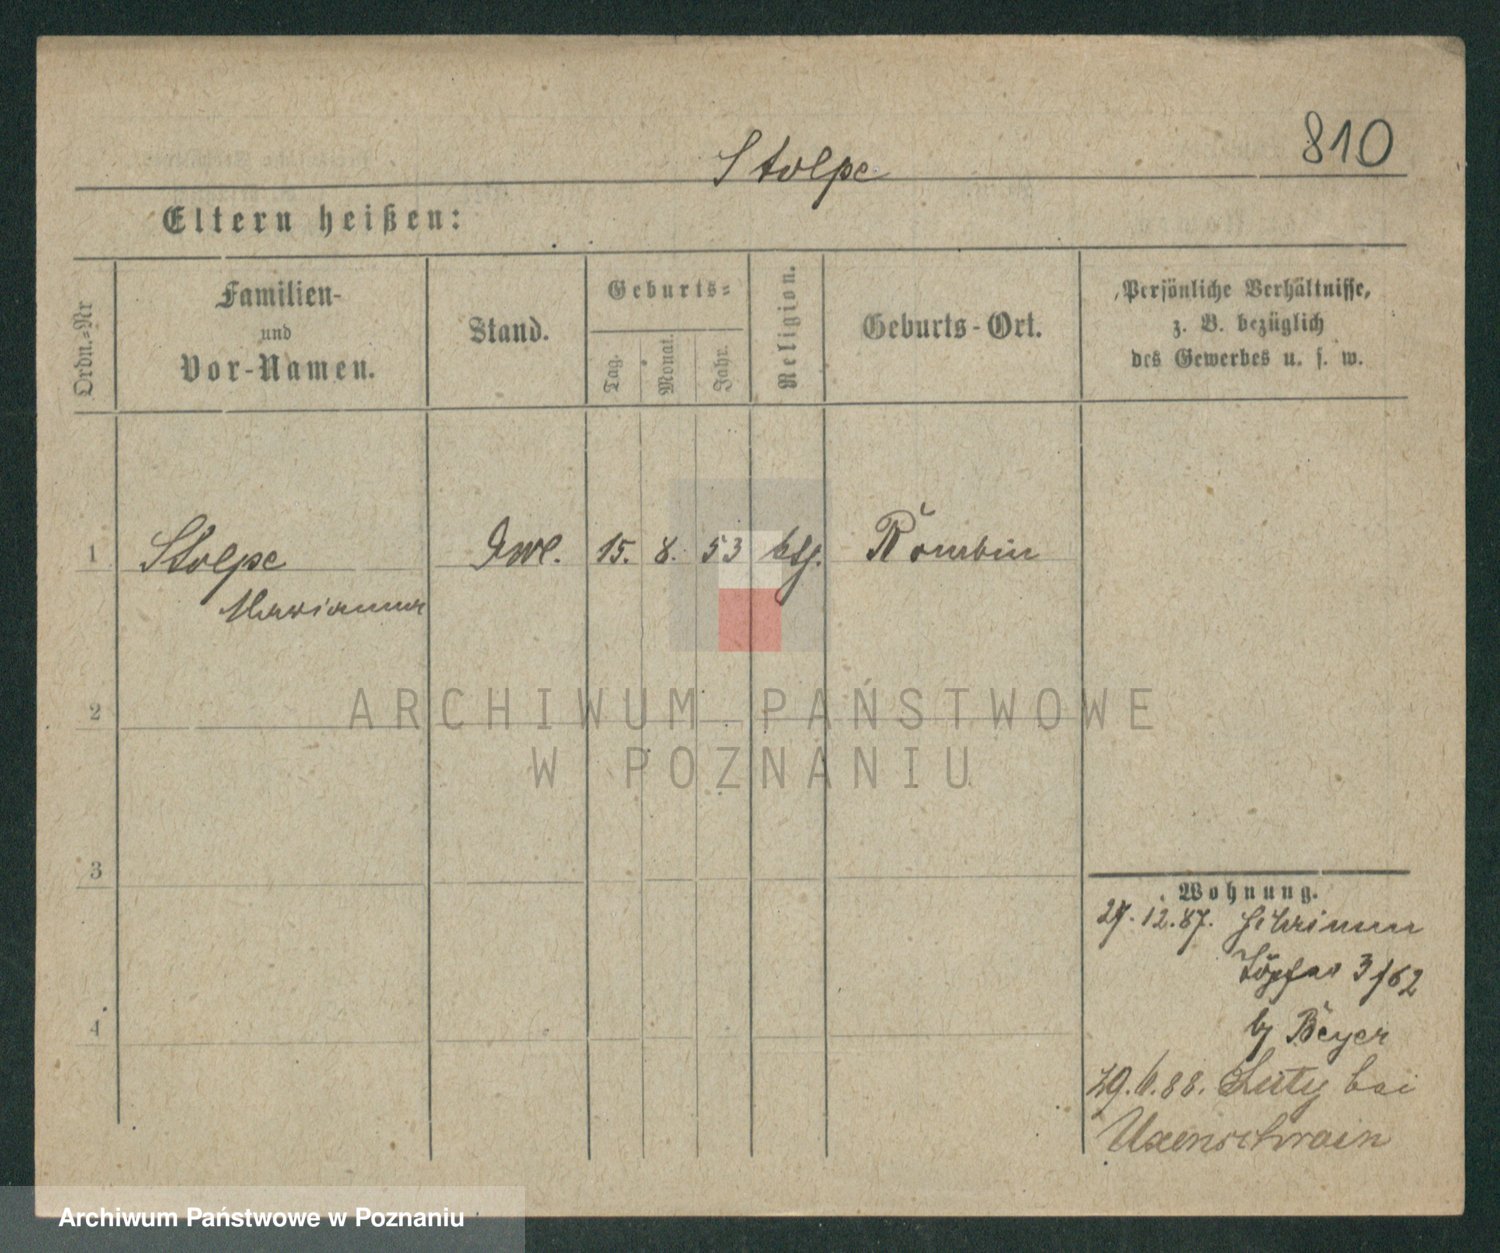 810
Stolpe
Eltern heißen:
Ordn.-Nr
Familien-
und
Vor-Namen.
Stand.
Geburts-
Tag.
Monat.
Jahr.
Religion.
Geburts-Ort.
Persönliche Verhältnisse,
z. B. bezüglich
des Gewerbes u. s. w.
1
Stolpe
Marianna
15. 8. 53 ktḥ.
2
3
4
Wohnung.
12.87.
Töpfer 3/62
by Beyer
29.6.88. bei
ARCHIWUM PAŃSTWOWE
W POZNANIU
Archiwum Państwowe w Poznaniu